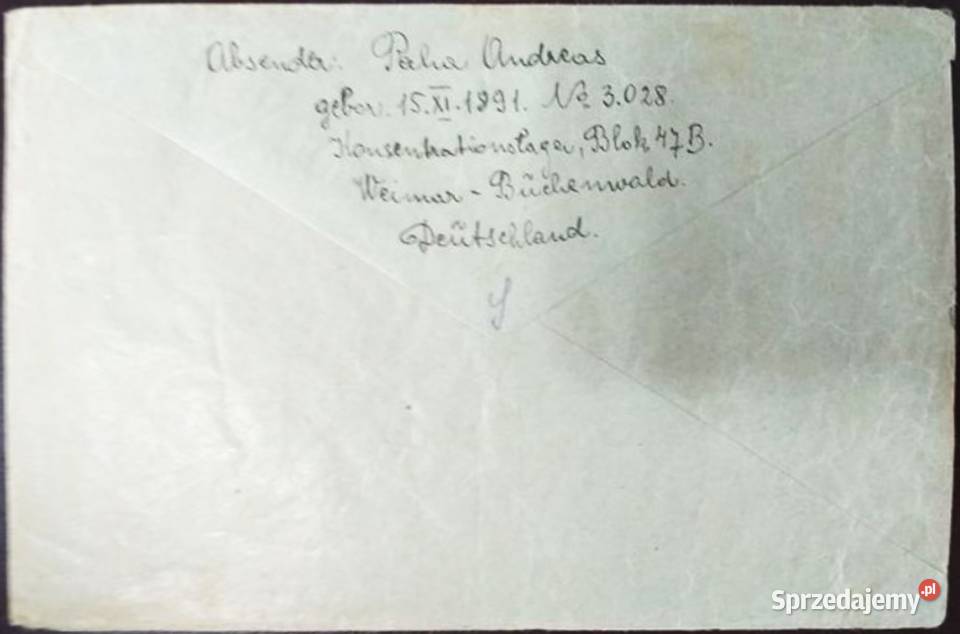 Absender: Paha Andreas
gebor. 15.XI.1891. No 3.028.
Konsentrationslager, Blok 47B.
Weimar - Bŭchenwald.
Deŭtschland.
Sprzedajemy.pl